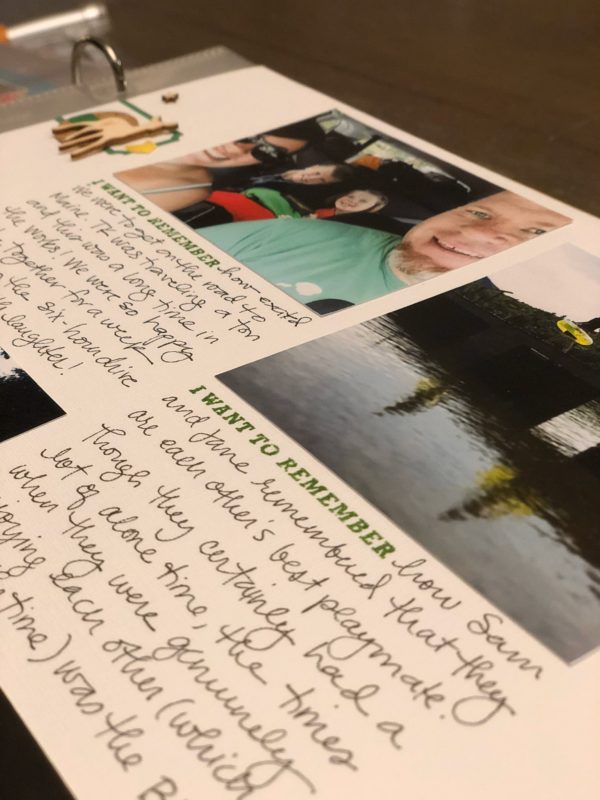 I WANT TO REMEMBER how excited
we were to get on the road to
Maine. TK was traveling a ton
and this was a long time in
the works! We were so happy
together for a week
the six-hour drive
laughter!
I WANT TO REMEMBER how Sam
and Jane remembered that they
are each other's best playmate.
Though they certainly had a
lot of alone time, the times
when they were genuinely
each other (which
time) was the